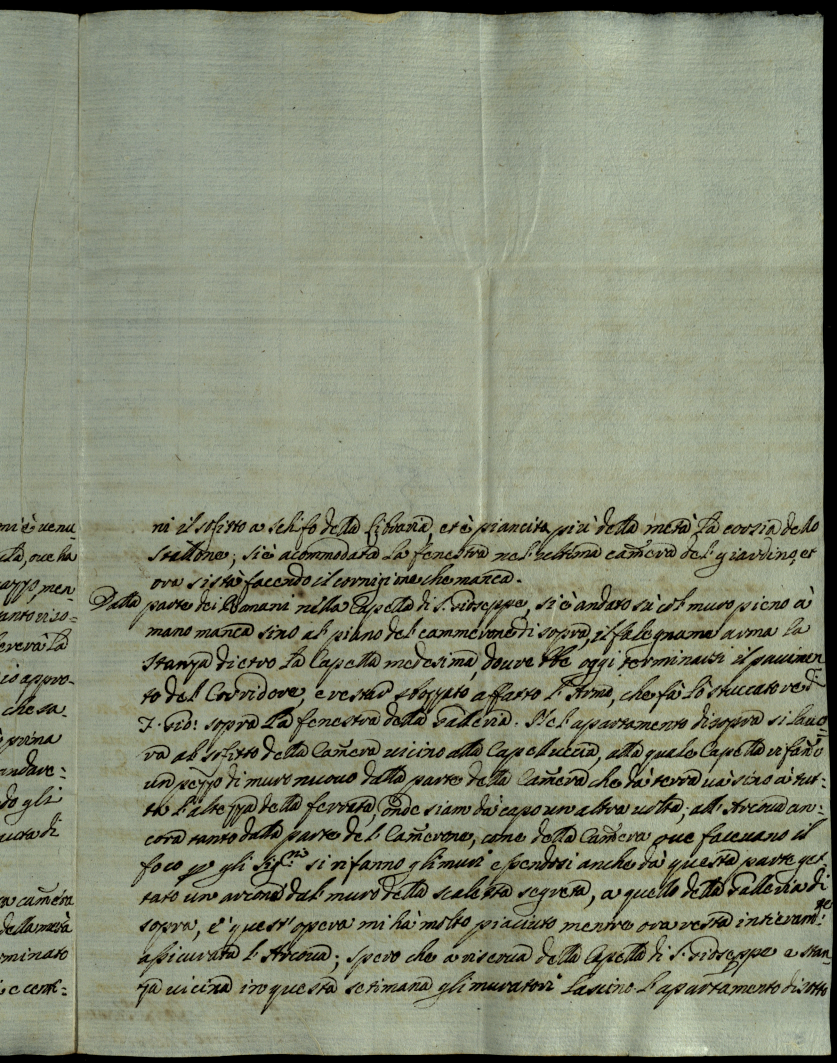 mi è venu
ove ha
azzo men
anto viso=
leverà La
io appro-
che sa-
prima
andare:
do gli
ucta di
ra camera
della metà
rminato
i e centi:
ni il sofitto a schifo della Libraria, et è piancita più della metà La corsia dello
Stallone; si è acommodata La fenestra nel'ultima camera del giardino, et
ora si stà facendo il cornisione che manca.
Dalla parte dei Banani nella Capella di S. Gioseppe, si è andato sù col muro pieno à
mano manca sino al piano del cammerone di sopra, il falegname arma La
stanza dietro La Capella medesima, dovrebbe oggi terminarsi il pavimen
to del Corridore, e restar sbozzato affatto l'Arma, che fà Lo stuccatore di
S. Gio: sopra La fenestra della Galleria. Nel apartamento di sopra si Lavo=
ra al sofitto della Camera vicino alla Capelluccia, alla quale Capella vi fanno
un pezzo di muro nuovo dalla parte della Camera che da terra và sino à tut-
ta l'altezza della ferrata, onde siam da capo un altra volta; all'Arcova an:
cora tanto dalla parte del Camerone, come della Camera ove facevano il
foco p gli Sig.ri si rifanno gli muri essendosi anche da questa parte get
tato un arcone dal muro della scaletta segreta, a quello della Galleria di
sopra, e quest'opera mi hà molto piaciuto mentre ora resta interam.te
assicurata l'Arcova; spero che a riserva della Capella di S. Gioseppe e stan
za vicina in questa settimana gli muratori Lascino l'apartamento di sotto